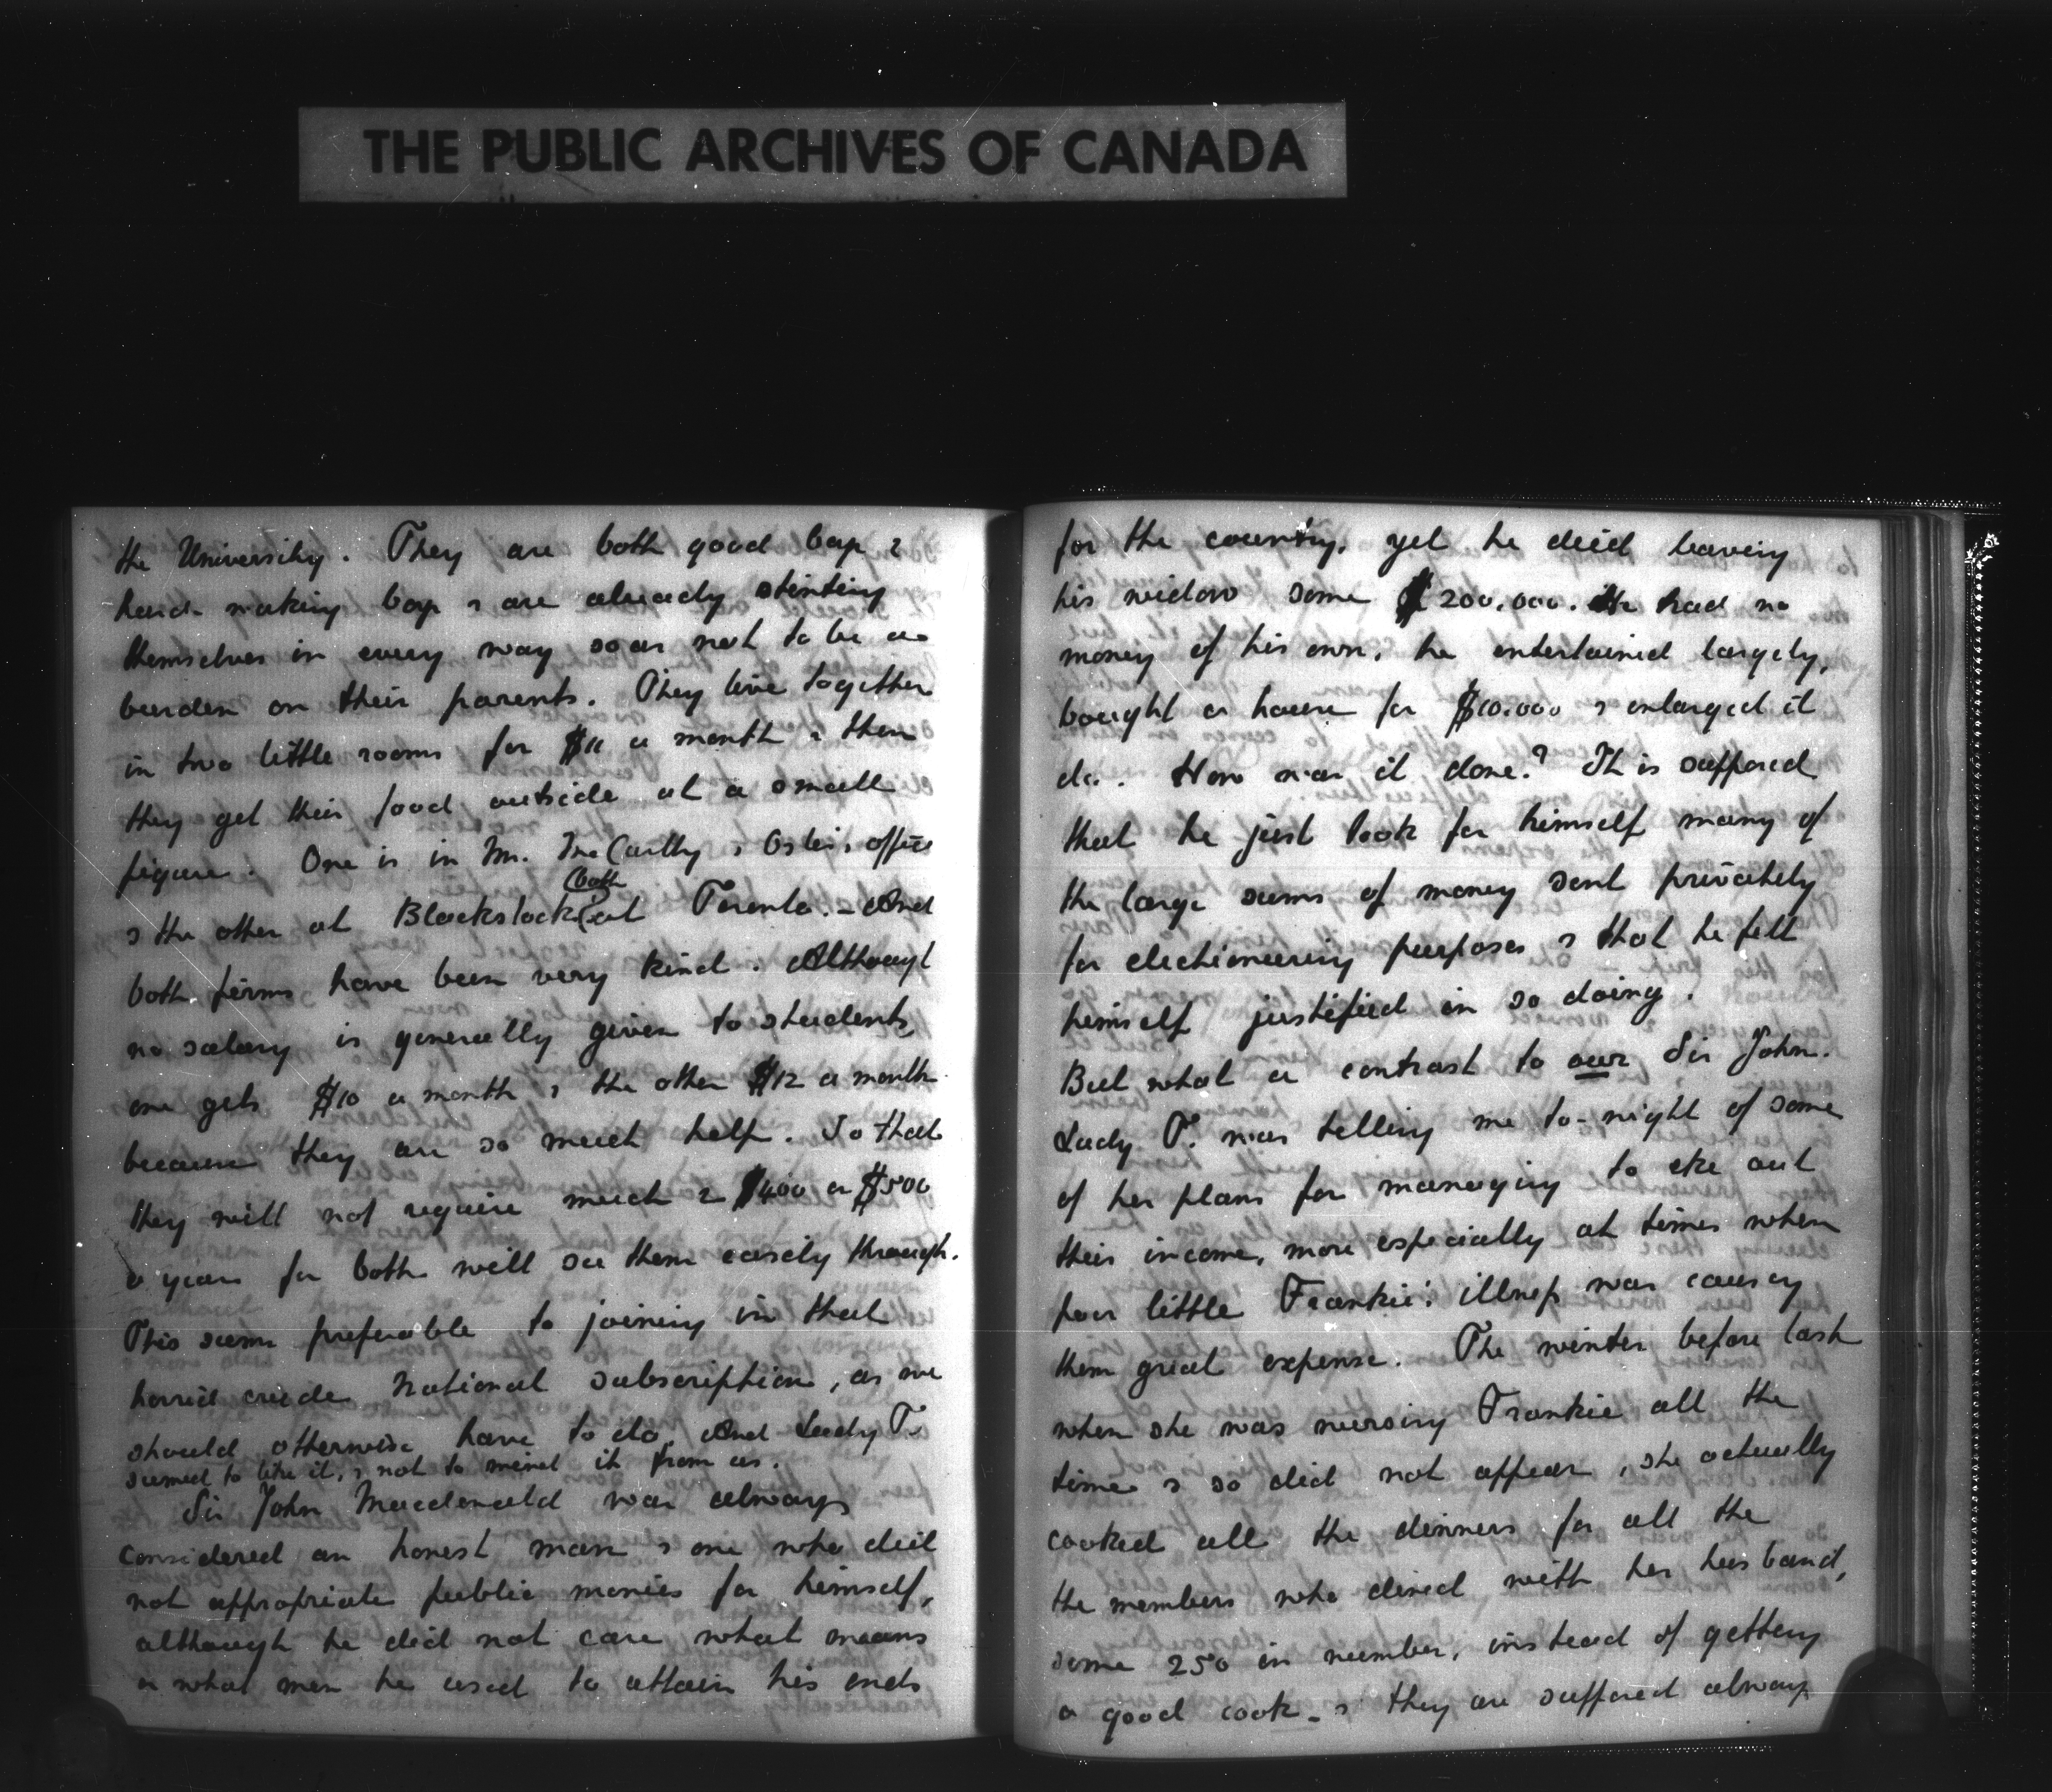 THE PUBLIC ARCHIVES OF CANADA
the University. They are both good boys &
hard-working boys & are already stinting
themselves in every way so as not to be a
burden on their parents. They live together
in two little rooms for $11 a month & then
they get their food outside at a small
figure. One is in Mr. McCarthy & Osler's office
& the other at Blackstock (both at Toronto. – And
both firms have been very kind. Although
no salary is generally given to students,
one gets $10 a month & the other $12 a month
because they are so much help. So that
they will not require much & $400 or $500
a year for both will see them easily through.
This seems preferable to joining in that
horrid crude National subscription, as we
should otherwise have to do. And Lady T.
seemed to like it, & not to mind it from us.
Sir John Macdonald was always
considered an honest man & one who did
not appropriate public monies for himself,
although he did not care what means
or what men he used to attain his ends
for the country, yet he died leaving
his widow some $200.000. He had no
money of his own, he entertained largely,
bought a house for $10.000 & enlarged it
&c. How was it done? It is supposed
that he just took for himself many of
the large sums of money sent privately
for electioneering purposes & that he felt
himself justified in so doing.
But what a contrast to our Sir John.
Lady T. was telling me to-night of some
of her plans for managing to eke out
their income, more especially at times when
poor little Frankie's illness was causing
them great expense. The winter before last
when she was nursing Frankie all the
time & so did not appear, she actually
cooked all the dinners for all the
the members who dined with her husband,
some 250 in number, instead of getting
a good cook – & they are supposed always